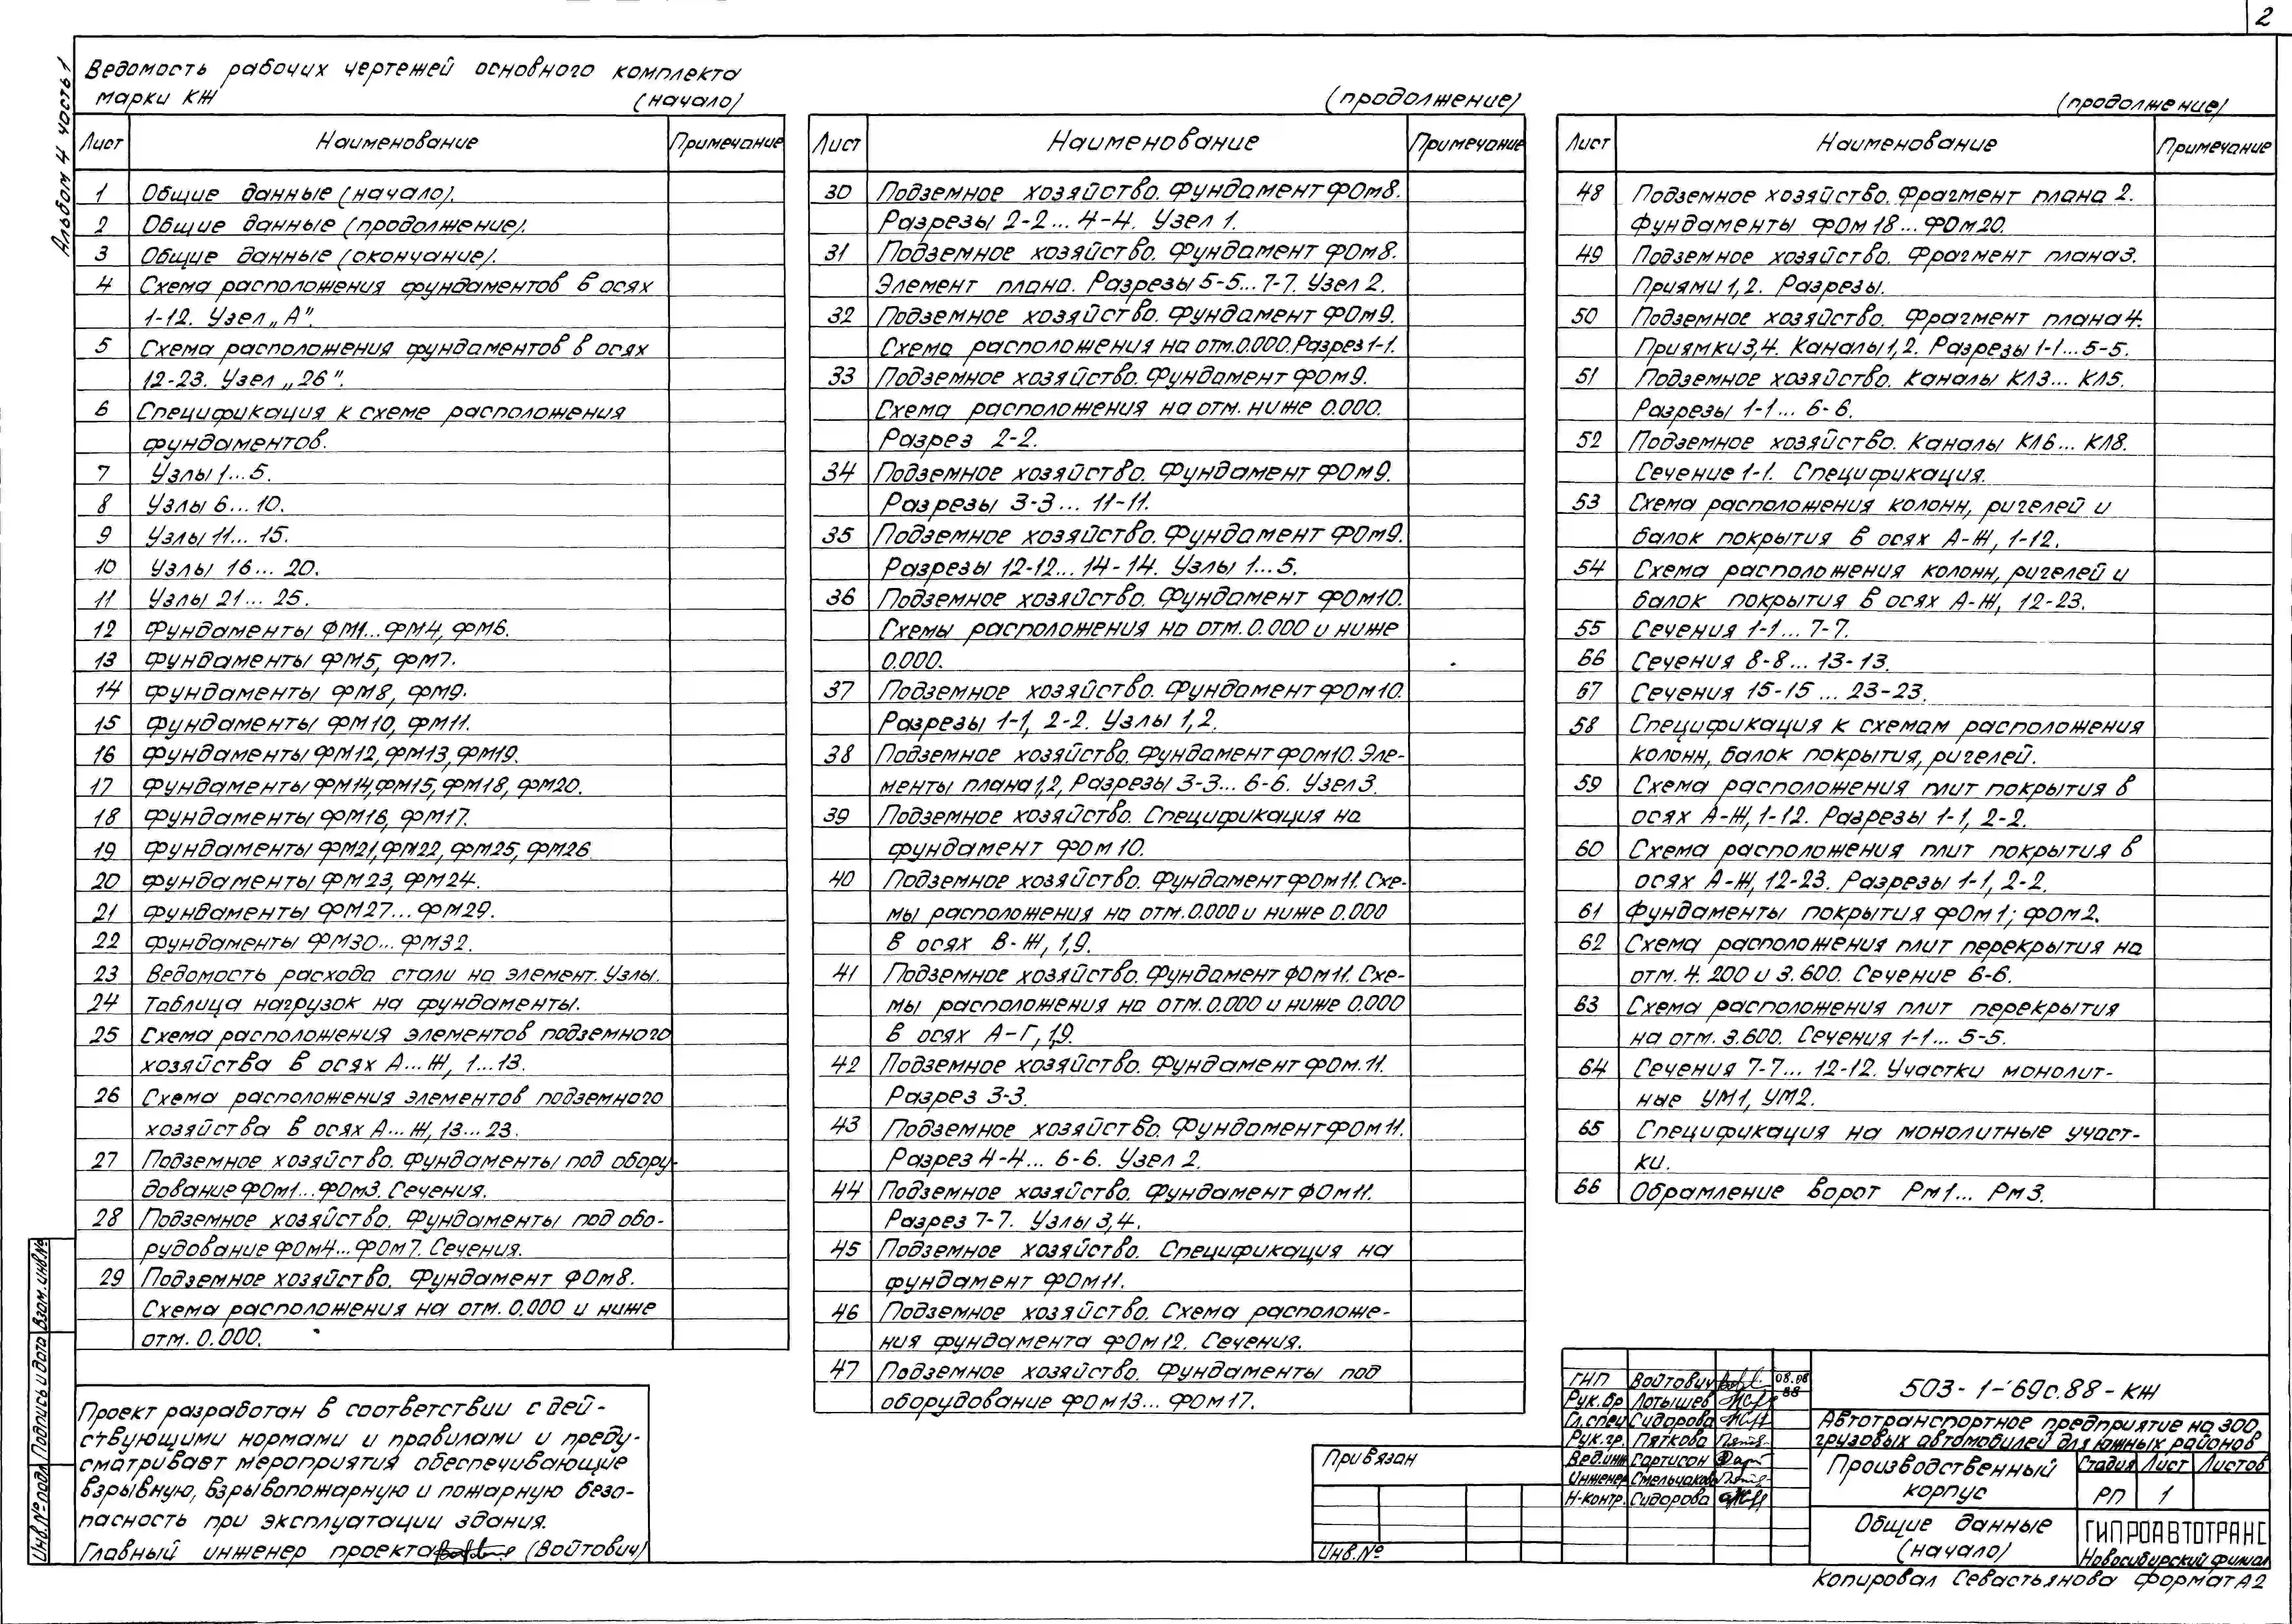 2
Альбом 4 часть 1
Ведомость рабочих чертежей основного комплекта
марки КЖ (начало)
Лист Наименование Примечание
1 Общие данные (начало).
2 Общие данные (продолжение).
3 Общие данные (окончание).
4 Схема расположения фундаментов в осях
1-12. Узел „А".
5 Схема расположения фундаментов в осях
12-23. Узел „26".
6 Спецификация к схеме расположения
фундаментов.
7 Узлы 1...5.
8 Узлы 6...10.
9 Узлы 11...15.
10 Узлы 16...20.
11 Узлы 21...25.
12 Фундаменты ФМ1...ФМ4, ФМ6.
13 Фундаменты ФМ5, ФМ7.
14 Фундаменты ФМ8, ФМ9.
15 Фундаменты ФМ10, ФМ11.
16 Фундаменты ФМ12, ФМ13, ФМ19.
17 Фундаменты ФМ14, ФМ15, ФМ18, ФМ20.
18 Фундаменты ФМ16, ФМ17.
19 Фундаменты ФМ21, ФМ22, ФМ25, ФМ26
20 Фундаменты ФМ23, ФМ24.
21 Фундаменты ФМ27...ФМ29.
22 Фундаменты ФМ30...ФМ32.
23 Ведомость расхода стали на элемент. Узлы.
24 Таблица нагрузок на фундаменты.
25 Схема расположения элементов подземного
хозяйства в осях А...Ж, 1...13.
26 Схема расположения элементов подземного
хозяйства в осях А...Ж, 13...23.
27 Подземное хозяйство. Фундаменты под обору-
дование ФОм1...ФОм3. Сечения.
28 Подземное хозяйство. Фундаменты под обо-
рудование ФОм4...ФОм7. Сечения.
29 Подземное хозяйство. Фундамент ФОм8.
Схема расположения на отм. 0.000 и ниже
отм. 0.000.
(продолжение)
Лист Наименование Примечание
30 Подземное хозяйство. Фундамент ФОм8.
Разрезы 2-2...4-4. Узел 1.
31 Подземное хозяйство. Фундамент ФОм8.
Элемент плана. Разрезы 5-5...7-7. Узел 2.
32 Подземное хозяйство. Фундамент ФОм9.
Схема расположения на отм. 0.000. Разрез 1-1.
33 Подземное хозяйство. Фундамент ФОм9.
Схема расположения на отм. ниже 0.000.
Разрез 2-2.
34 Подземное хозяйство. Фундамент ФОм9.
Разрезы 3-3...11-11.
35 Подземное хозяйство. Фундамент ФОм9.
Разрезы 12-12...14-14. Узлы 1...5.
36 Подземное хозяйство. Фундамент ФОм10.
Схемы расположения на отм. 0.000 и ниже
0.000.
37 Подземное хозяйство. Фундамент ФОм10.
Разрезы 1-1, 2-2. Узлы 1,2.
38 Подземное хозяйство. Фундамент ФОм10. Эле-
менты плана 1,2, Разрезы 3-3...6-6. Узел 3.
39 Подземное хозяйство. Спецификация на
фундамент ФОм10.
40 Подземное хозяйство. Фундамент ФОм11. Схе-
мы расположения на отм. 0.000 и ниже 0.000
в осях В-Ж, 1,9.
41 Подземное хозяйство. Фундамент ФОм11. Схе-
мы расположения на отм. 0.000 и ниже 0.000
в осях А-Г, 1,9.
42 Подземное хозяйство. Фундамент ФОм.11.
Разрез 3-3.
43 Подземное хозяйство. Фундамент ФОм11.
Разрез 4-4...6-6. Узел 2.
44 Подземное хозяйство. Фундамент ФОм11.
Разрез 7-7. Узлы 3,4.
45 Подземное хозяйство. Спецификация на
фундамент ФОм11.
46 Подземное хозяйство. Схема расположе-
ния фундамента ФОм12. Сечения.
47 Подземное хозяйство. Фундаменты под
оборудование ФОм13...ФОм17.
(продолжение)
Лист Наименование Примечание
48 Подземное хозяйство. Фрагмент плана 2.
Фундаменты ФОм18...ФОм20.
49 Подземное хозяйство. Фрагмент плана 3.
Приямки 1,2. Разрезы.
50 Подземное хозяйство. Фрагмент плана 4.
Приямки 3,4. Каналы 1,2. Разрезы 1-1...5-5.
51 Подземное хозяйство. Каналы КЛ3...КЛ5.
Разрезы 1-1...6-6.
52 Подземное хозяйство. Каналы КЛ6...КЛ8.
Сечение 1-1. Спецификация.
53 Схема расположения колонн, ригелей и
балок покрытия в осях А-Ж, 1-12.
54 Схема расположения колонн, ригелей и
балок покрытия в осях А-Ж, 12-23.
55 Сечения 1-1...7-7.
56 Сечения 8-8...13-13.
57 Сечения 15-15...23-23.
58 Спецификация к схемам расположения
колонн, балок покрытия, ригелей.
59 Схема расположения плит покрытия в
осях А-Ж, 1-12. Разрезы 1-1, 2-2.
60 Схема расположения плит покрытия в
осях А-Ж, 12-23. Разрезы 1-1, 2-2.
61 Фундаменты покрытия ФОм1; ФОм2.
62 Схема расположения плит перекрытия на
отм. 4.200 и 3.600. Сечение 6-6.
63 Схема расположения плит перекрытия
на отм. 3.600. Сечения 1-1...5-5.
64 Сечения 7-7...12-12. Участки монолит-
ные УМ1, УМ2.
65 Спецификация на монолитные участ-
ки.
66 Обрамление ворот Рм1...Рм3.
Проект разработан в соответствии с дей-
ствующими нормами и правилами и преду-
сматривает мероприятия обеспечивающие
взрывную, взрывопожарную и пожарную безо-
пасность при эксплуатации здания.
Главный инженер проекта (Войтович)
Инв.№ подл. Подпись и дата Взам.инв.№
Привязан
Инв.№
ГИП Войтович 08.08 88
Рук.бр Лотышев
Гл.спец Сидорова
Рук.гр. Пяткова
Вед.инж Гартисон
Инженер Смельчакова
Н-контр. Сидорова
503-1-69с.88-КЖ
Автотранспортное предприятие на 300
грузовых автомобилей для южных районов
Производственный
корпус
Стадия Лист Листов
РП 1
Общие данные
(начало)
ГИПРОАВТОТРАНС
Новосибирский филиал
Копировал Севастьянова Формат А2